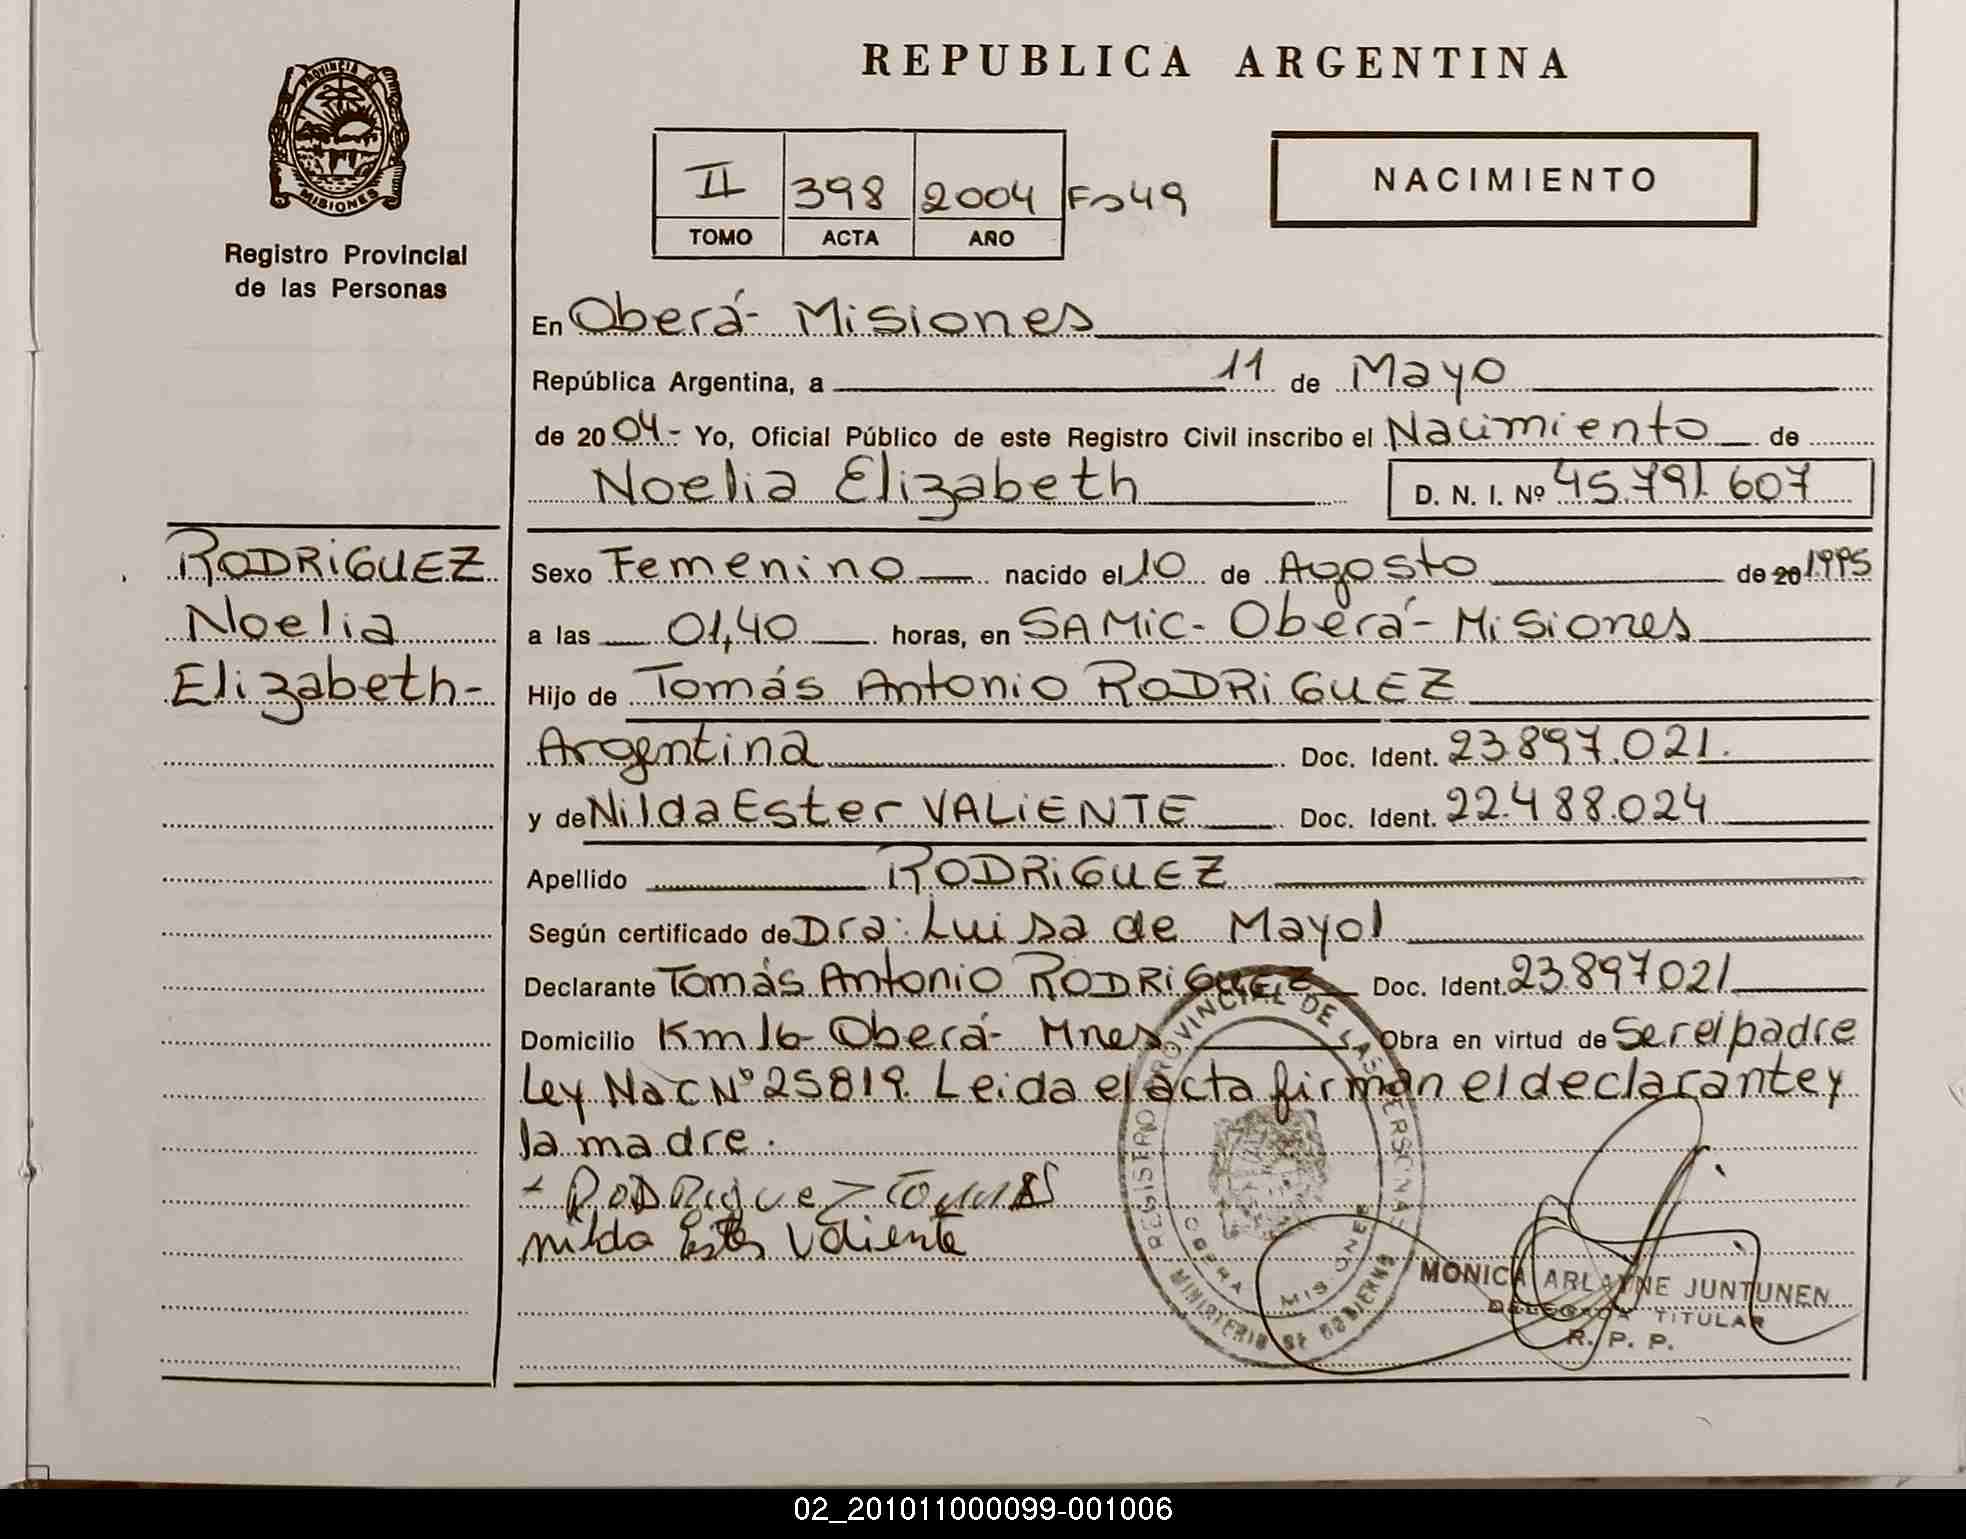 REPUBLICA ARGENTINA
PROVINCIA D
MISIONES
Registro Provincial
de las Personas
II 398 2004 Fo 49
TOMO ACTA AÑO
NACIMIENTO
En Oberá- Misiones
República Argentina, a 11 de Mayo
de 20 04- Yo, Oficial Público de este Registro Civil inscribo el Nacimiento de
Noelia Elizabeth D. N. I. Nº 45.791.607
RODRIGUEZ
Noelia
Elizabeth-
Sexo Femenino nacido el 10 de Agosto de 20 1995
a las 01,40 horas, en SAMIC- Oberá- Misiones
Hijo de Tomás Antonio RODRIGUEZ
Argentina Doc. Ident. 23.897.021.
y de Nilda Ester VALIENTE Doc. Ident. 22.488.024
Apellido RODRIGUEZ
Según certificado de Dra: Luisa de Mayol
Declarante Tomás Antonio RODRIGUEZ Doc. Ident. 23.897021
Domicilio Km 16- Oberá- Mnes Obra en virtud de Ser el padre
Ley Nac Nº 25819. Leida el acta firman el declarante y
la madre.
RODRIguez Tomas
nilda Ester Valiente
REGISTRO PROVINCIAL DE LAS PERSONAS
OBERA MISIONES
MINISTERIO DE GOBIERNO
MONICA ARLAYNE JUNTUNEN
DELEGADA TITULAR
R. P. P.
02_201011000099-001006